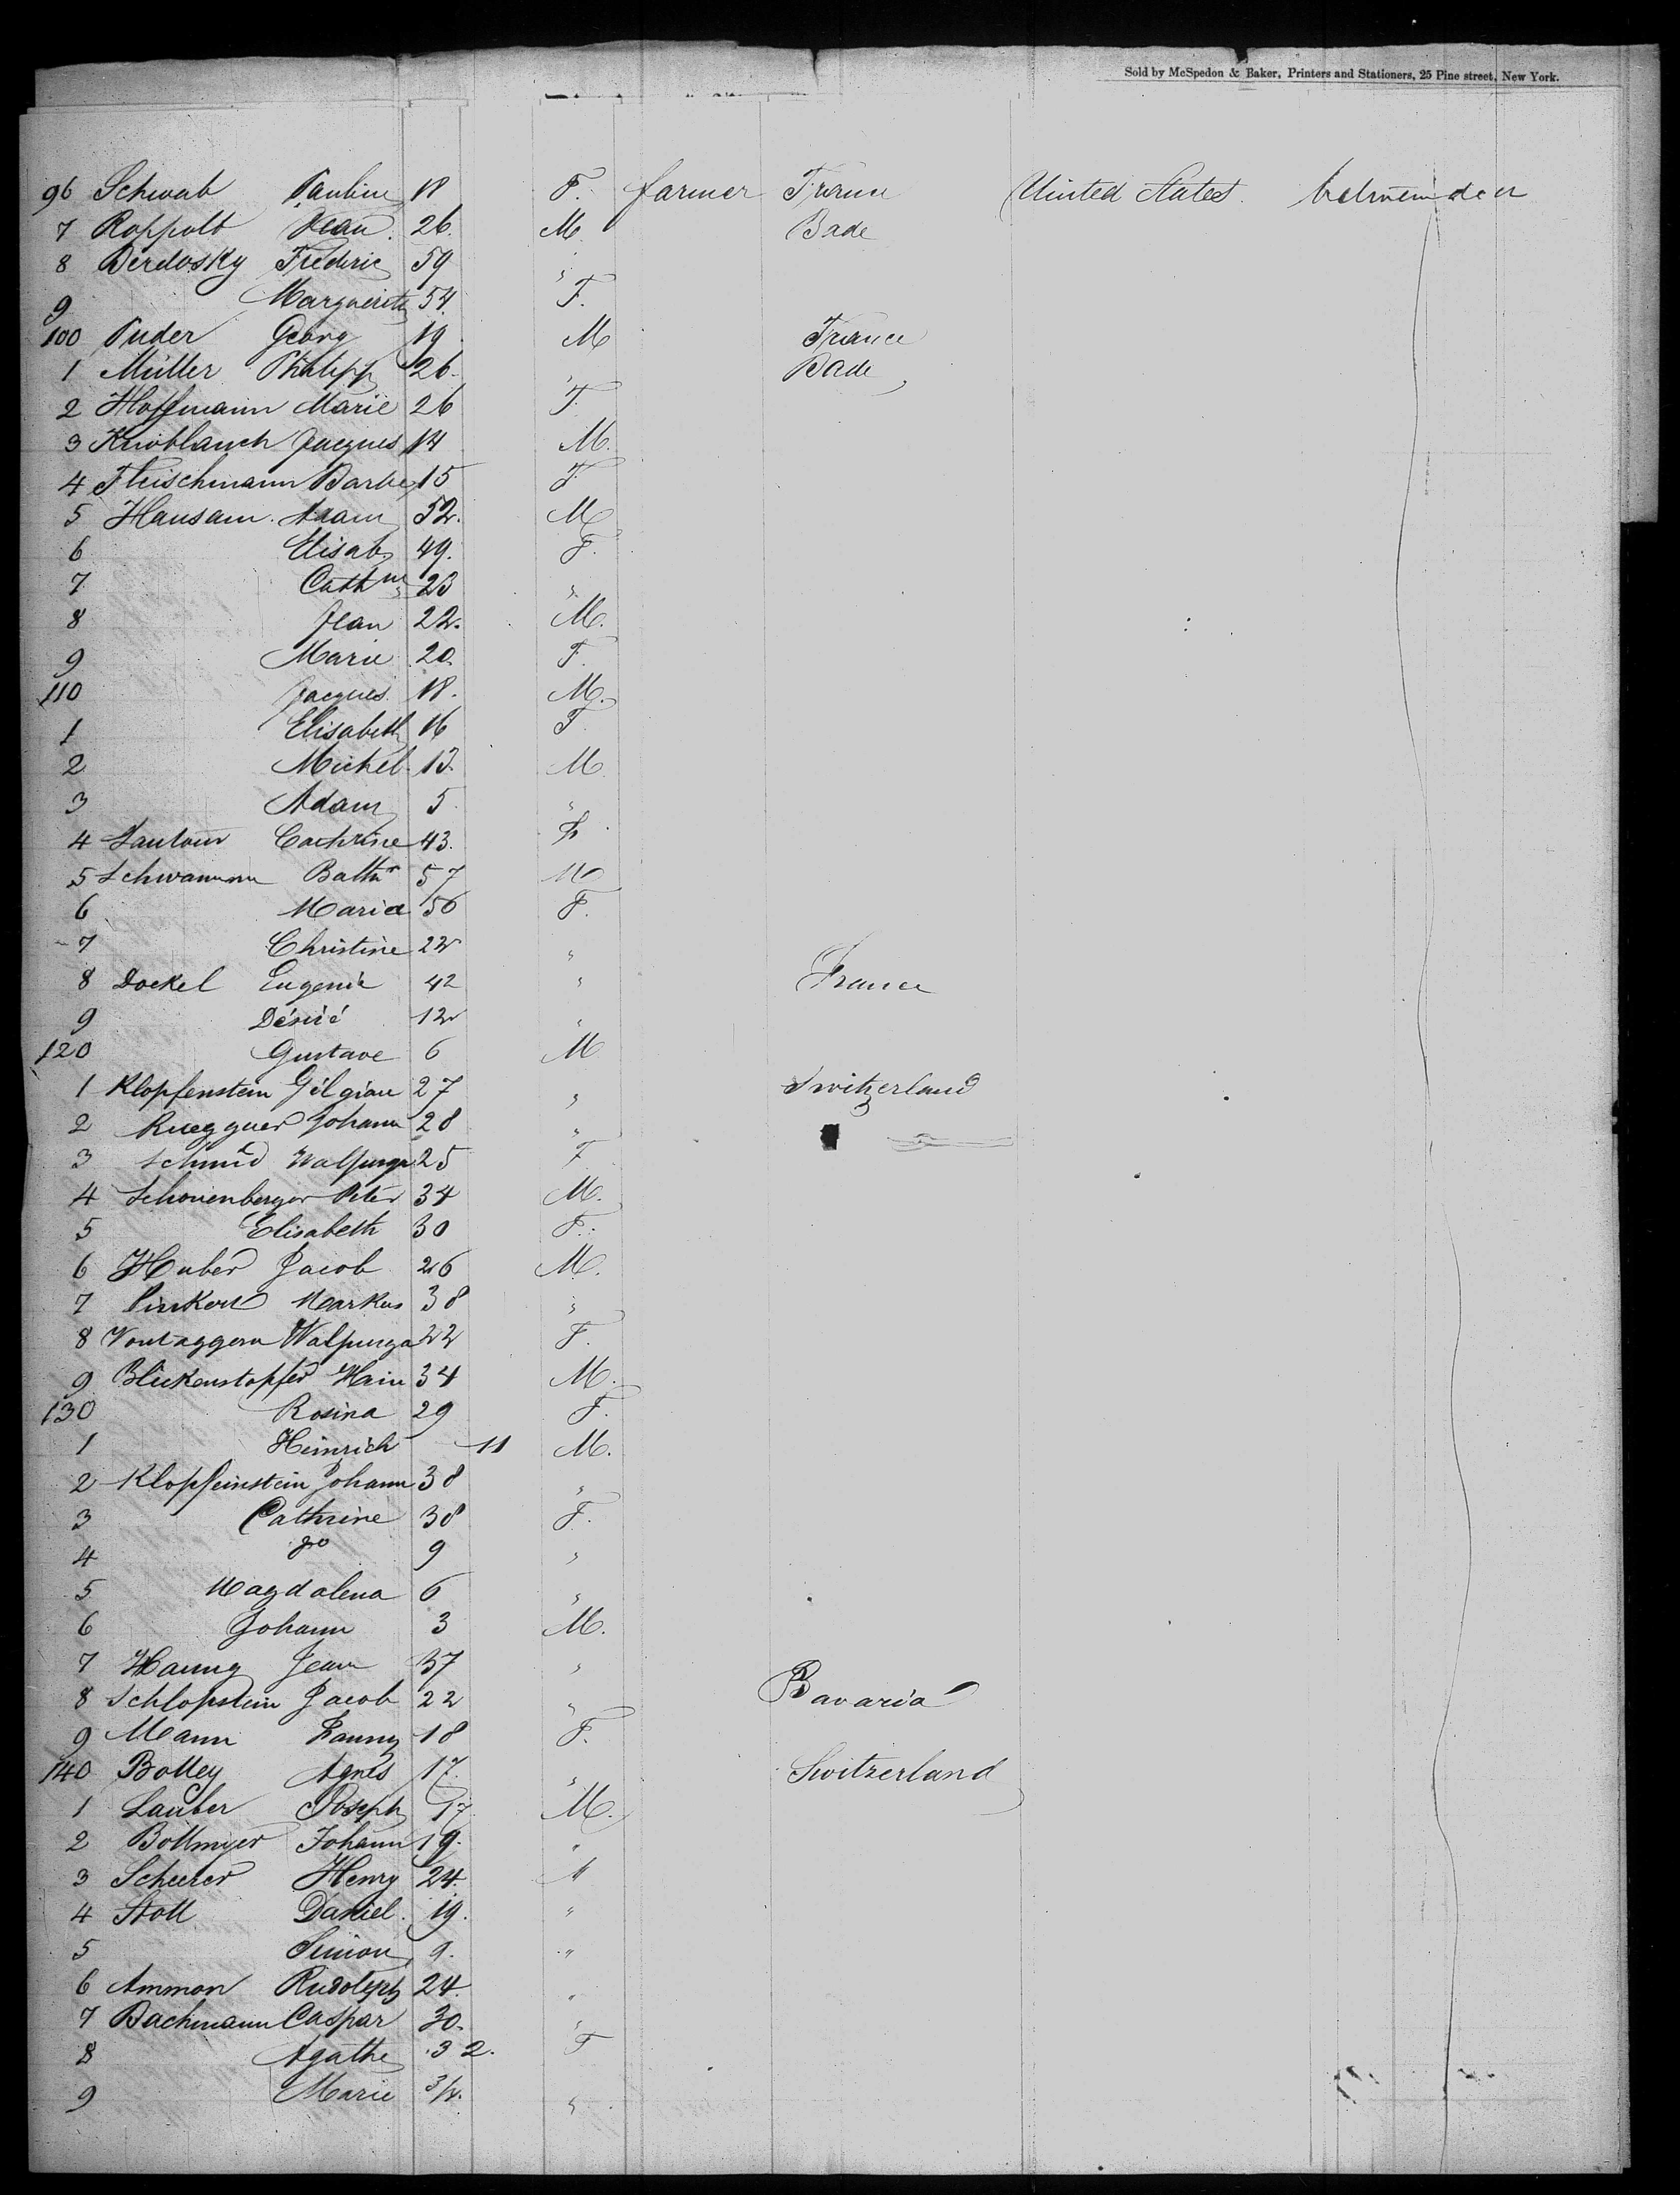 Sold by McSpedon & Baker, Printers and Stationers, 25 Pine street, New York.
96 Schwab Pauline 18 F. farmer France United States.
7 Roppolt Jean. 26. M. Bade
8 Berdosky Frederic 59 "
9 Marguerite 54. F.
100 Puder Georg 19 M France
1 Müller Philipp 26. " Bade
2 Hoffmann Marie 26 F.
3 Knoblauch Jacques 14 M.
4 Fleischmann Barbe 15 F.
5 Hausam. Adam 52. M
6 Elisab 49. F.
7 Cathne 23 "
8 Jean 22. M.
9 Marie 20. F.
110 Jacques. 18. M.
1 Elisabeth 16 F.
2 Michel. 13. M.
3 Adam 5. "
4 Cathrine 43. F.
5 Schwamm Balthr 57 M
6 Maria 56 F.
7 Christine 22 "
8 Dockel Eugenie 42 " France
9 Désiré 12 "
120 Gustave 6 M
1 Klopfenstein Gilgian 27 " Switzerland
2 Ruegguer Johann 28 "
3 Schmid Walpurga 25 F
4 Schonenberger Peter 34 M.
5 Elisabeth 30 F.
6 Huber Jacob 26 M.
7 Markus 38 "
8 Vontaggern Walpurga 22 F.
9 Blickenstopfer Hein 34 M.
130 Rosina 29 F.
1 Heinrich 11 M.
2 Klopfeinstein Johann 38 "
3 Cathrine 38 F.
4 do 9 "
5 Magdalena 6 "
6 Johann 3 M.
7 Haung Jean 37 "
8 Schlopstein Jacob 22 " Bavaria
9 Mann Fanny 18 F.
140 Bolley Agnes 17. " Switzerland
1 Lauber Joseph 17 M.
2 Bollmyer Johann 19. "
3 Scheerer Henry 24. "
4 Stoll Daniel. 19. "
5 Simon 9. "
6 Ammon Rudolph 24. "
7 Bachmann Caspar 30. "
8 Agathe 32. F
9 Marie 3/4. "